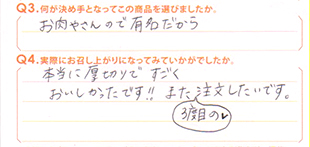 Q3.何が決め手となってこの商品を選びましたか。
お肉やさんので有名だから
Q4.実際にお召し上がりになってみていかがでしたか。
本当に厚切りで すごく
おいしかったです!! また注文したいです。
3度目の